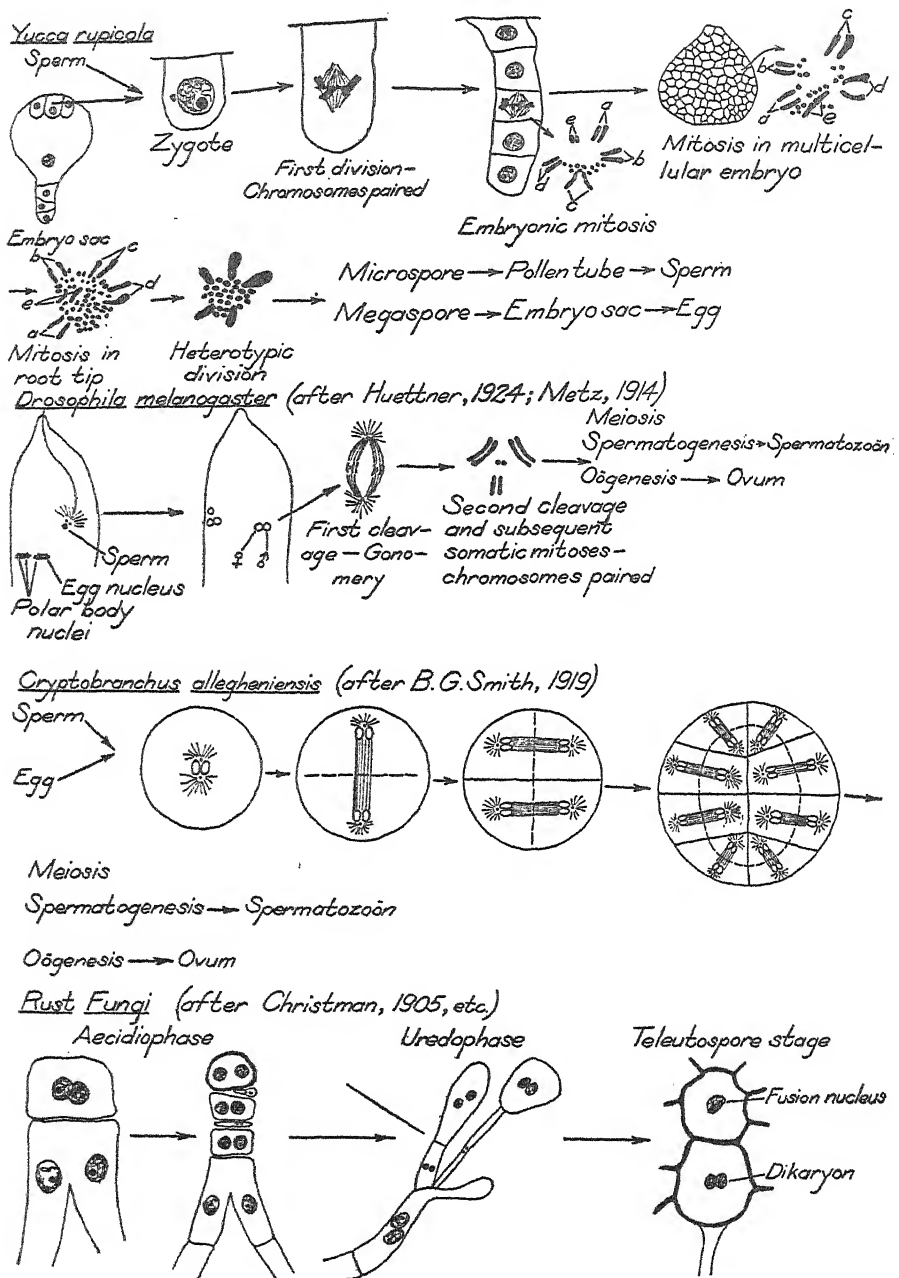 Yucca rupicola
Sperm
Zygote
First division-
Chromosomes paired
e
a
b
d
c
Embryonic mitosis
c
b
d
a
e
Mitosis in multicel-
lular embryo
Embryo sac
b
c
d
e
a
Mitosis in
root tip
Heterotypic
division
Microspore → Pollen tube → Sperm
Megaspore → Embryo sac → Egg
Drosophila melanogaster (after Huettner, 1924; Metz, 1914)
Sperm
Egg nucleus
Polar body
nuclei
♀ ♂
First cleav-
age - Gono-
mery
Second cleavage
and subsequent
somatic mitoses-
chromosomes paired
Meiosis
Spermatogenesis → Spermatozoön
Oögenesis → Ovum
Cryptobranchus allegheniensis (after B.G. Smith, 1919)
Sperm
Egg
Meiosis
Spermatogenesis → Spermatozoön
Oögenesis → Ovum
Rust Fungi (after Christman, 1905, etc.)
Aecidiophase
Uredophase
Teleutospore stage
Fusion nucleus
Dikaryon